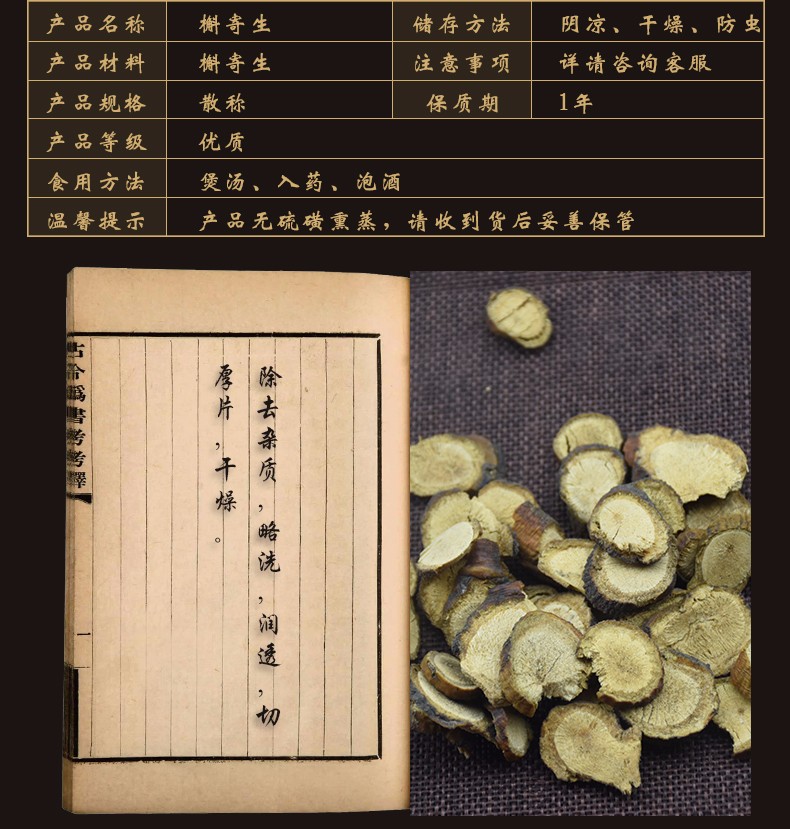 产品名称 槲寄生 储存方法 阴凉、干燥、防虫
产品材料 槲寄生 注意事项 详请咨询客服
产品规格 散称 保质期 1年
产品等级 优质
食用方法 煲汤、入药、泡酒
温馨提示 产品无硫磺熏蒸，请收到货后妥善保管
除去杂质，略洗，润透，切
厚片，干燥。
古今伪書考考釋
一